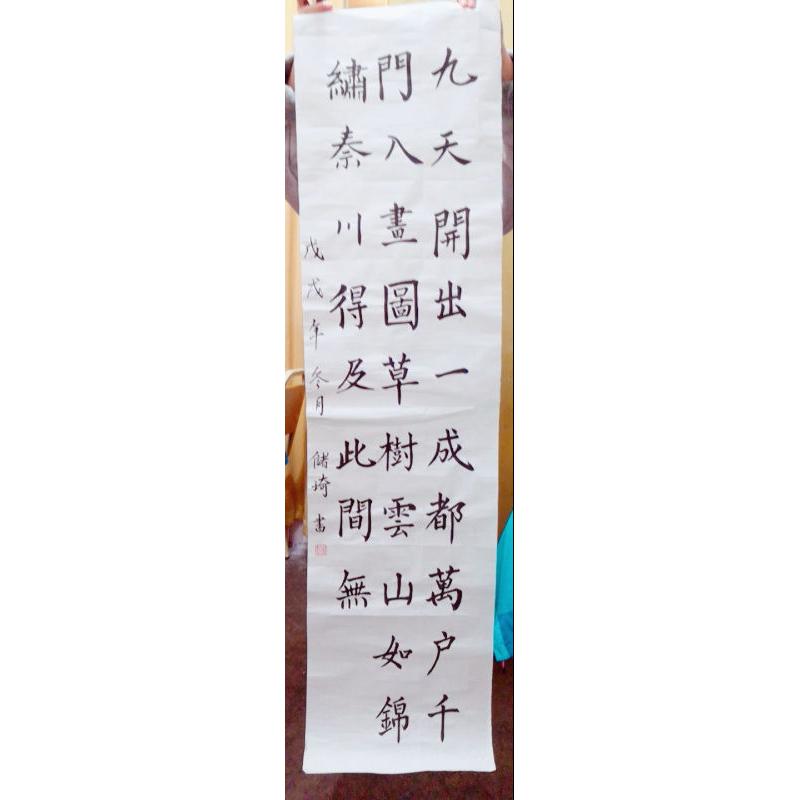 九天開出一成都萬户千
門八畫圖草樹雲山如錦
繡秦川得及此間無
戊戌年冬月 儲琦 書